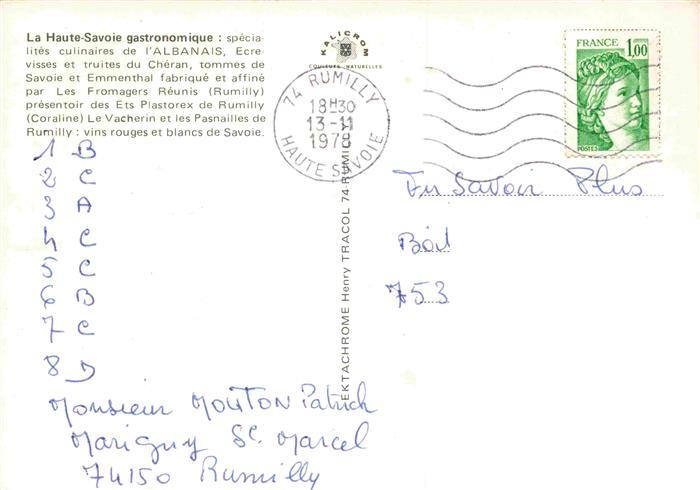 La Haute-Savoie gastronomique : spécia-
lités culinaires de l'ALBANAIS, Ecre-
visses et truites du Chéran, tommes de
Savoie et Emmenthal fabriqué et affiné
par Les Fromagers Réunis (Rumilly)
présentoir des Ets Plastorex de Rumilly
(Coraline) Le Vacherin et les Pasnailles de
Rumilly : vins rouges et blancs de Savoie.
1 B
2 C
3 A
4 C
5 C
6 B
7 C
8 D
Monsieur MOUTON Patrick
Marigny St. Marcel
74150 Rumilly
KALICROM
COULEURS NATURELLES
74 RUMILLY
18H30
13-11
1978
HAUTE SAVOIE
EKTACHROME Henry TRACOL 74-RUMILLY
FRANCE
1,00
POSTES
En Savoir Plus
753